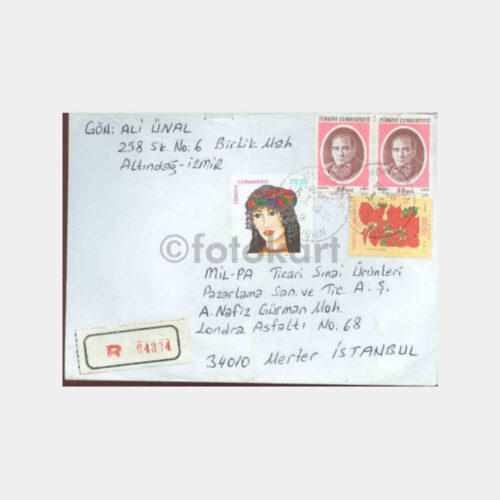 GÖN: ALİ ÜNAL
258 Sk. No: 6 Birlik Mah.
Altındağ-İzmir
TÜRKİYE CUMHURİYETİ
TÜRKİYE CUMHURİYETİ
50 000
50 000
TÜRKİYE CUMHURİYETİ
100.000
©fotokart
MİL-PA Ticari Sınai Ürünleri
Pazarlama San. ve Tic. A.Ş.
A. Nafiz Gürman Mah.
Londra Asfaltı No: 68
34010 Merter İSTANBUL
R 04394